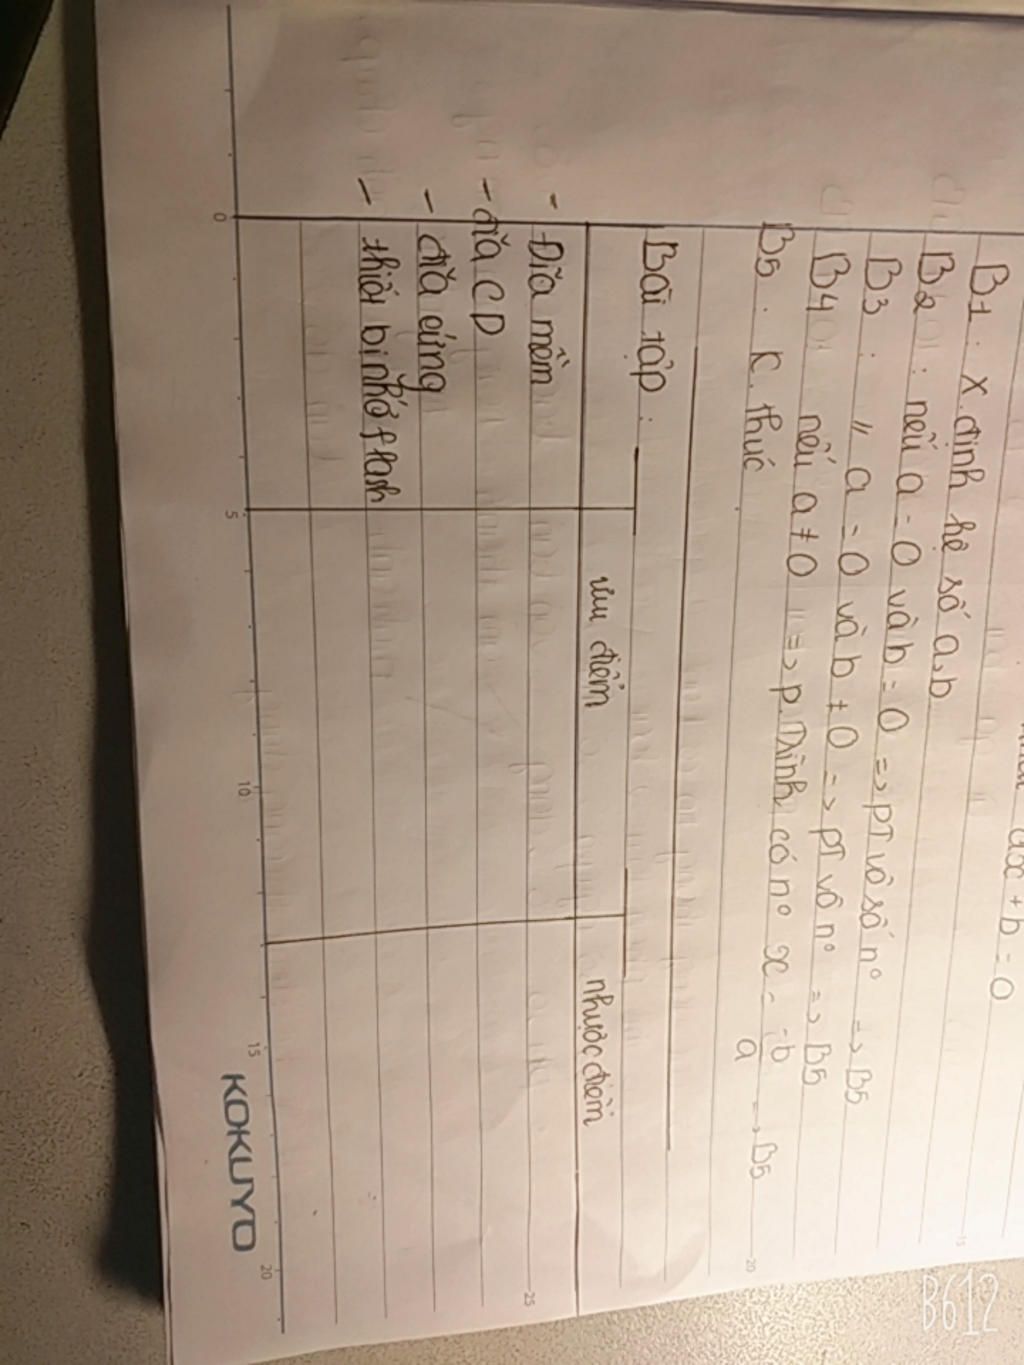 ax + b = 0
B1. X. định hệ số a, b
B2: nếu a = 0 và b = 0 => PT vô số n° => B5
B3: " a = 0 và b ≠ 0 => PT vô n° => B5
B4: nếu a ≠ 0 => p. trình có n° x = -b/a => B5
B5. K. thúc
Bài tập:
ưu điểm nhược điểm
- Đĩa mềm
- đĩa CD
- đĩa cứng
- thiết bị nhớ flash
0 5 10 15 20
KOKUYO
15
20
25
B612